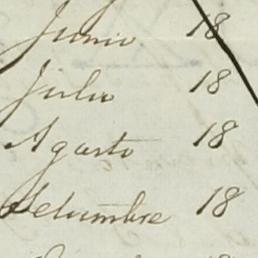 Junio 18
Julio 18
Agosto 18
Setiembre 18